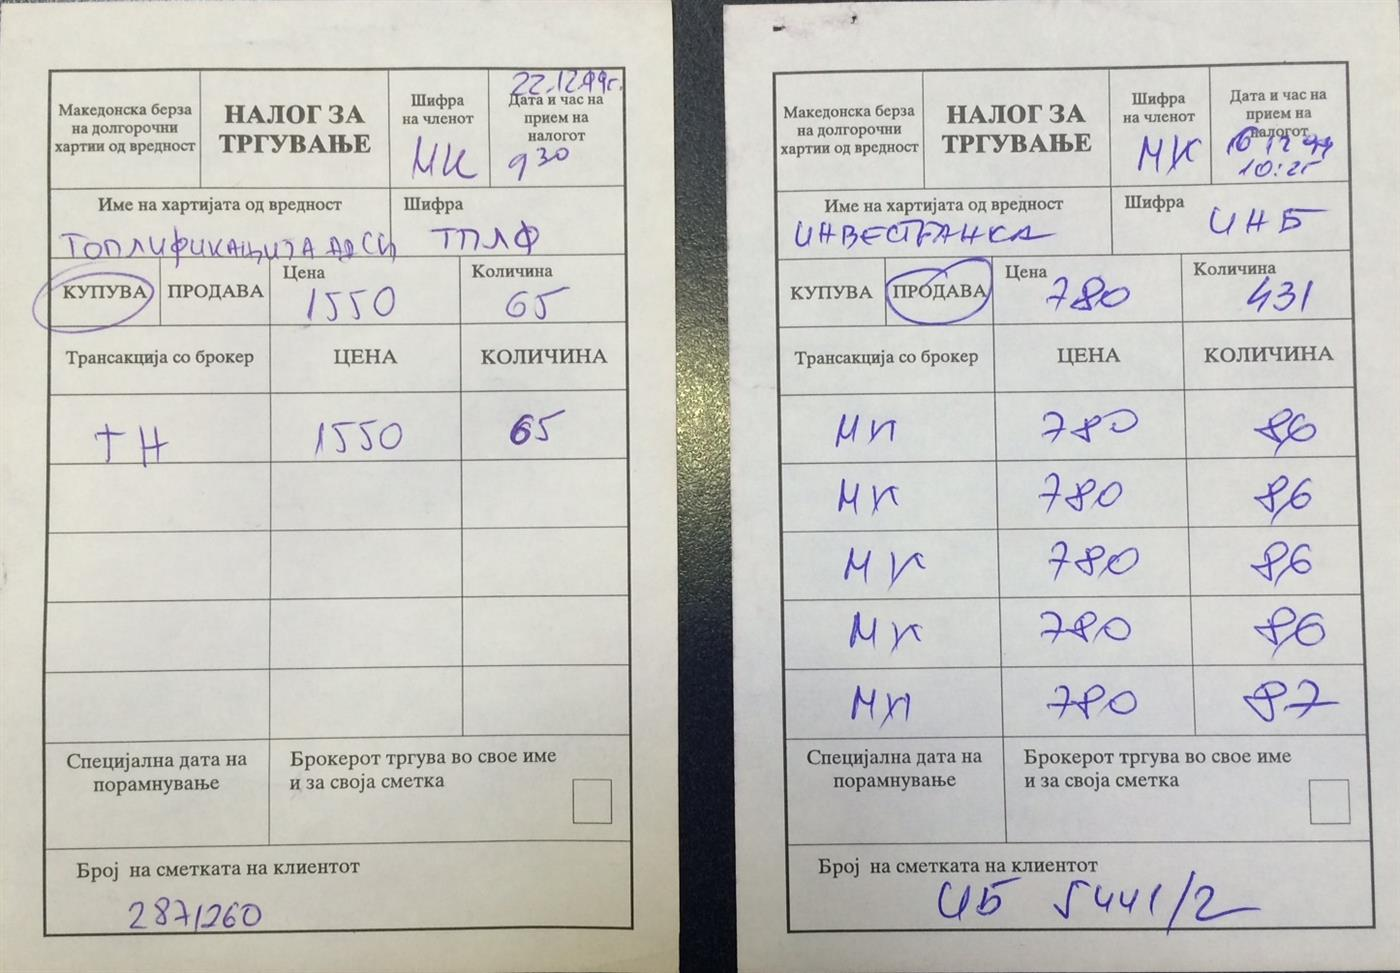 Македонска берза
на долгорочни
хартии од вредност
НАЛОГ ЗА
ТРГУВАЊЕ
Шифра
на членот
МК
22.12.99г.
Дата и час на
прием на
налогот
9 30
Име на хартијата од вредност
ТОПЛИФИКАЦИЈА АД СК
Шифра
ТПЛФ
КУПУВА
ПРОДАВА
Цена
1550
Количина
65
Трансакција со брокер
ЦЕНА
КОЛИЧИНА
ТН 1550 65
Специјална дата на
порамнување
Брокерот тргува во свое име
и за своја сметка
Број на сметката на клиентот
287/260
Македонска берза
на долгорочни
хартии од вредност
НАЛОГ ЗА
ТРГУВАЊЕ
Шифра
на членот
МК
Дата и час на
прием на
налогот
16 12 99
10:25
Име на хартијата од вредност
ИНВЕСТБАНКА
Шифра
ИНБ
КУПУВА
ПРОДАВА
Цена
780
Количина
431
Трансакција со брокер
ЦЕНА
КОЛИЧИНА
МК 780 86
МК 780 86
МК 780 86
МК 780 86
МК 780 87
Специјална дата на
порамнување
Брокерот тргува во свое име
и за своја сметка
Број на сметката на клиентот
ИБ 5441/2